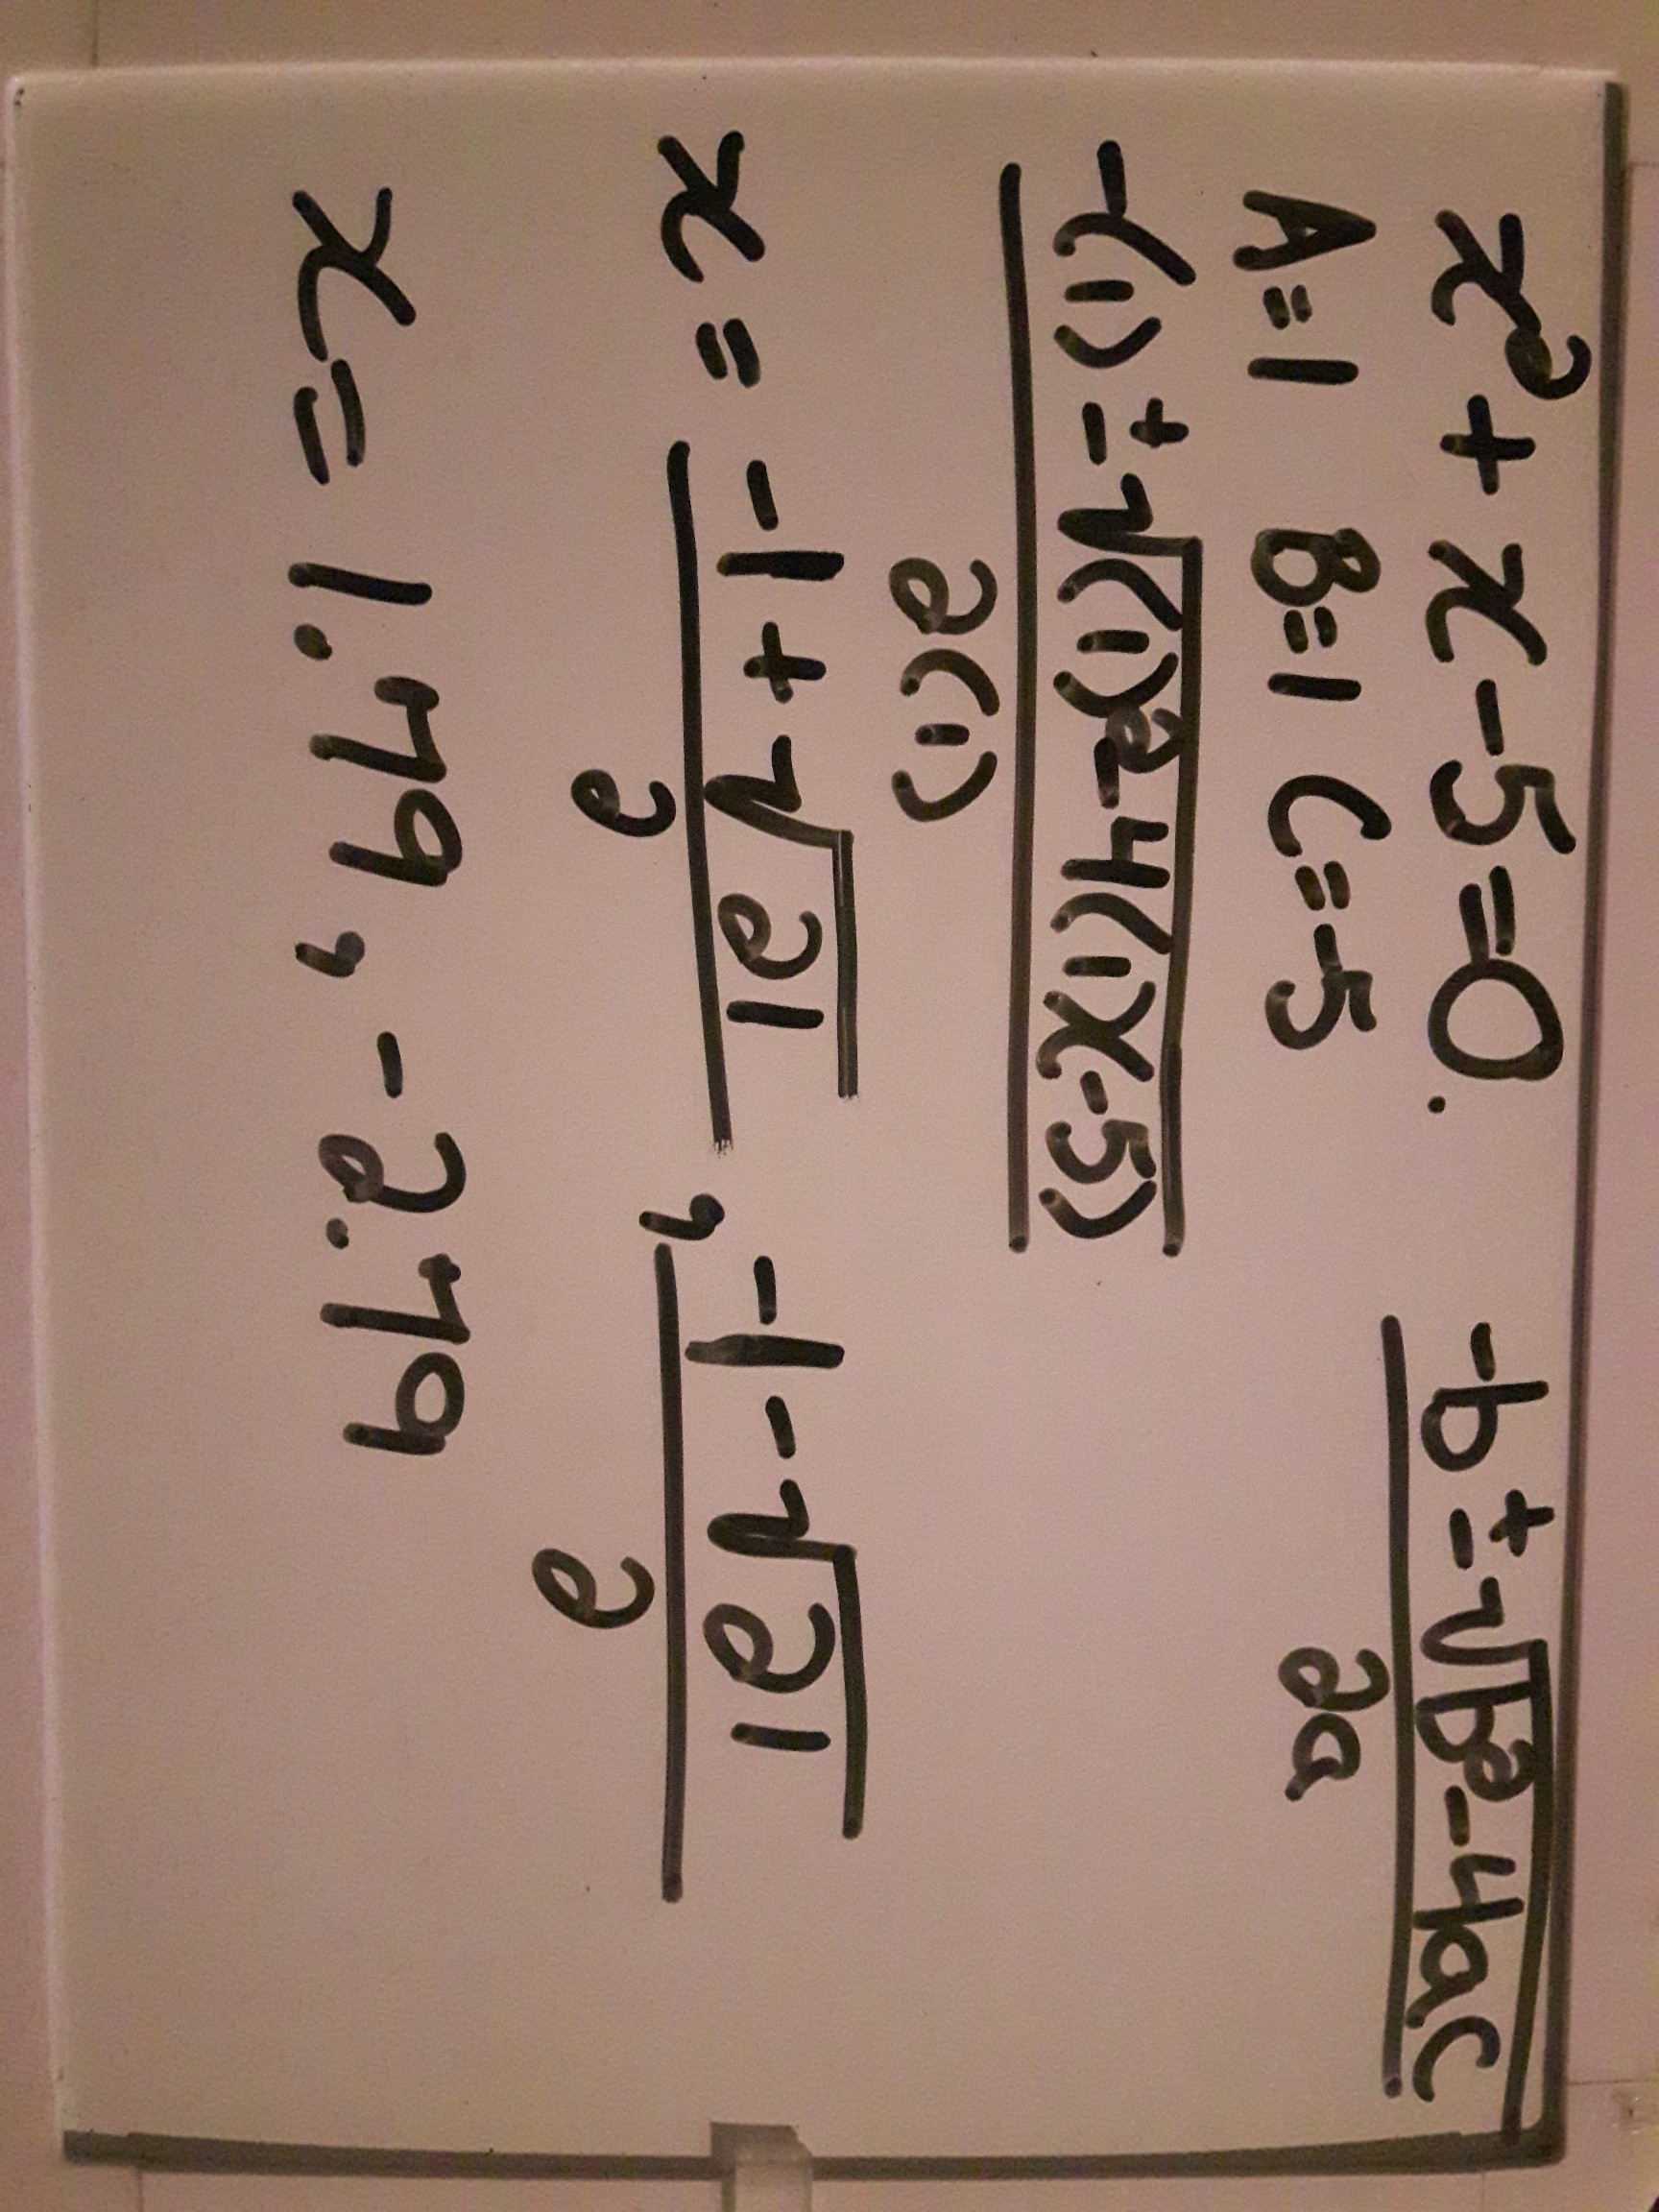 x²+x-5=0.
-b±√b²-4ac
2a
A=1 B=1 C=-5
-(1)±√(1)²-4(1)(-5)
2(1)
x = -1+√21 , -1-√21
2 2
x= 1.79, -2.79